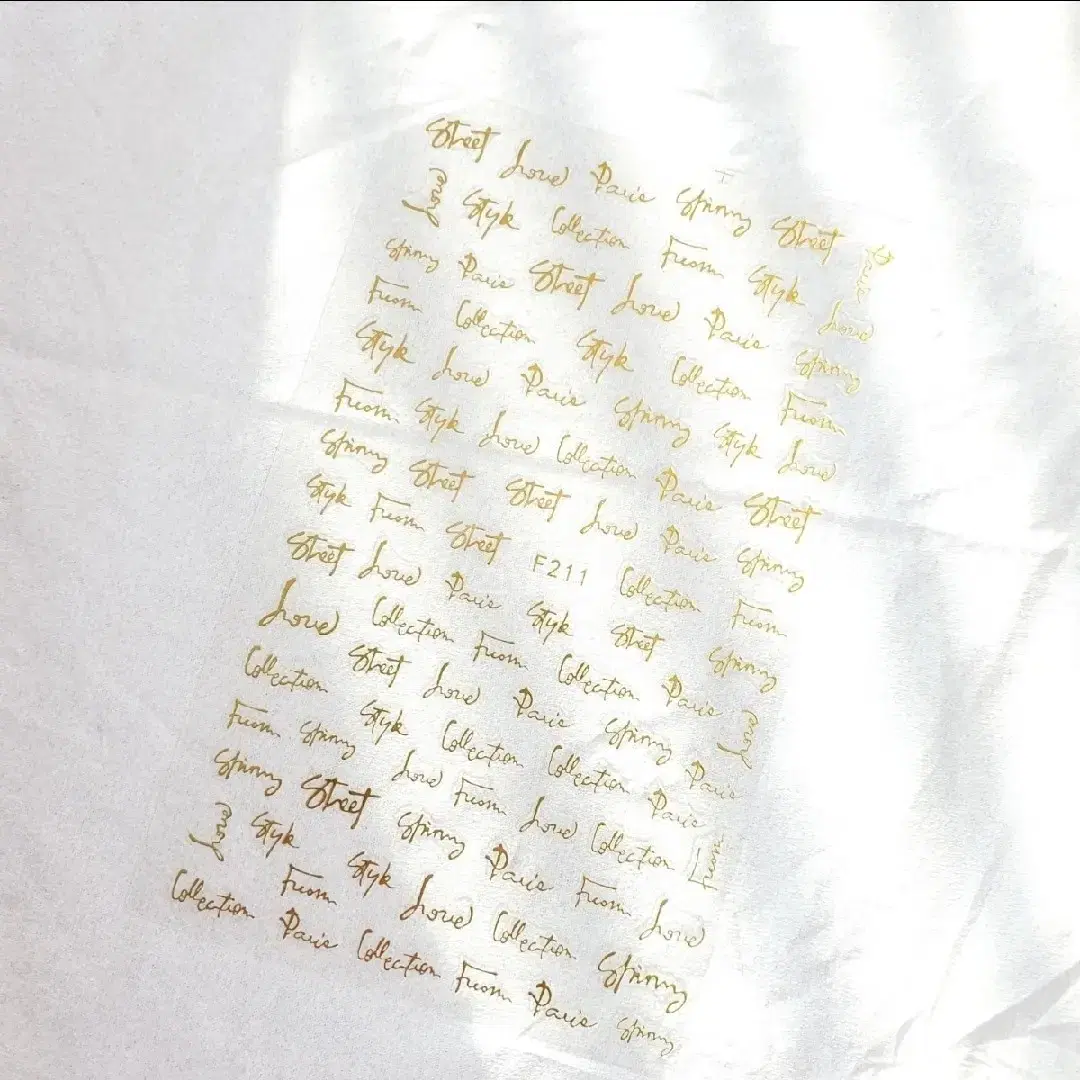 Street Love Paris Street Paris
Love Style Collection From Style Love
Paris Street Love Paris
From Collection Style Collection From
Style Love Paris Style Love
From Style Love Collection Paris Street
Street Street Love Paris
Style From Street F211 Collection From
Street Love Paris Style Street
Love Collection From Collection Paris Love
Collection Street Love Paris Paris
Style Collection Collection Paris
From Love From Love Collection From
Street Paris From Love
Love Style From Style Love Collection
Collection Paris Collection From Paris